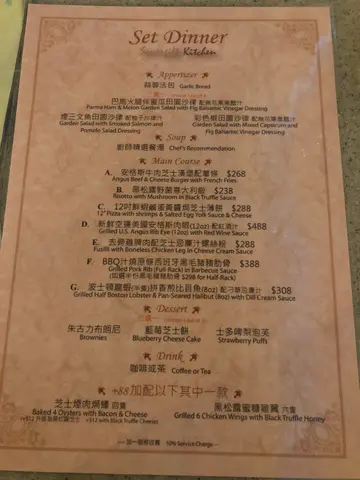 Set Dinner
Kitchen
Appetizer
蒜蓉法包 Garlic Bread
巴馬火腿伴蜜瓜田園沙律 配無花果黑醋汁
Parma Ham & Melon Garden Salad with Fig Balsamic Vinegar Dressing
煙三文魚田園沙律 配柚子沙律汁
Garden Salad with Smoked Salmon and
Pomelo Salad Dressing
彩色蝦田園沙律 配無花果黑醋汁
Garden Salad with Mixed Capstrum and
Fig Balsamic Vinegar Dressing
Soup
廚師精選餐湯 Chef's Recommendation
Main Course
A. 安格斯牛肉芝士漢堡配薯條 $268
Angus Beef & Cheese Burger with French Fries
B. 黑松露野菌意大利飯 $238
Risotto with Mushroom in Black Truffle Sauce
C. 12吋鮮蝦鹹蛋黃醬焗芝士薄餅 $288
12" Pizza with shrimps & Salted Egg Yolk Sauce & Cheese
D. 新鮮空運美國安格斯肉眼(12oz) 配紅酒汁 $488
Grilled U.S. Angus Rib Eye (12oz) with Red Wine Sauce
E. 去骨雞脾肉配芝士忌廉汁螺絲粉 $288
Fusilli with Boneless Chicken Leg in Cheese Cream Sauce
F. BBQ汁燒原條西班牙黑毛豬豬肋骨 $388
Grilled Pork Rib (Full-Rack) in Barbecue Sauce
(如選半份黑毛豬豬肋骨 $298 for Half-Rack)
G. 波士頓龍蝦(半隻)拼香煎比目魚(8oz) 配刁草忌廉汁 $308
Grilled Half Boston Lobster & Pan-Seared Halibut (8oz) with Dill Cream Sauce
Dessert
朱古力布朗尼
Brownies
藍莓芝士餅
Blueberry Cheese Cake
士多啤梨泡芙
Strawberry Puffs
Drink
咖啡或茶 Coffee or Tea
+88加配以下其中一款
芝士煙肉焗蠔 四隻
Baked 4 Oysters with Bacon & Cheese
+$12 with Black Truffle Cheese)
黑松露蜜糖雞翼 六隻
Grilled 6 Chicken Wings with Black Truffle Honey
加一服務費 10% Service Charge